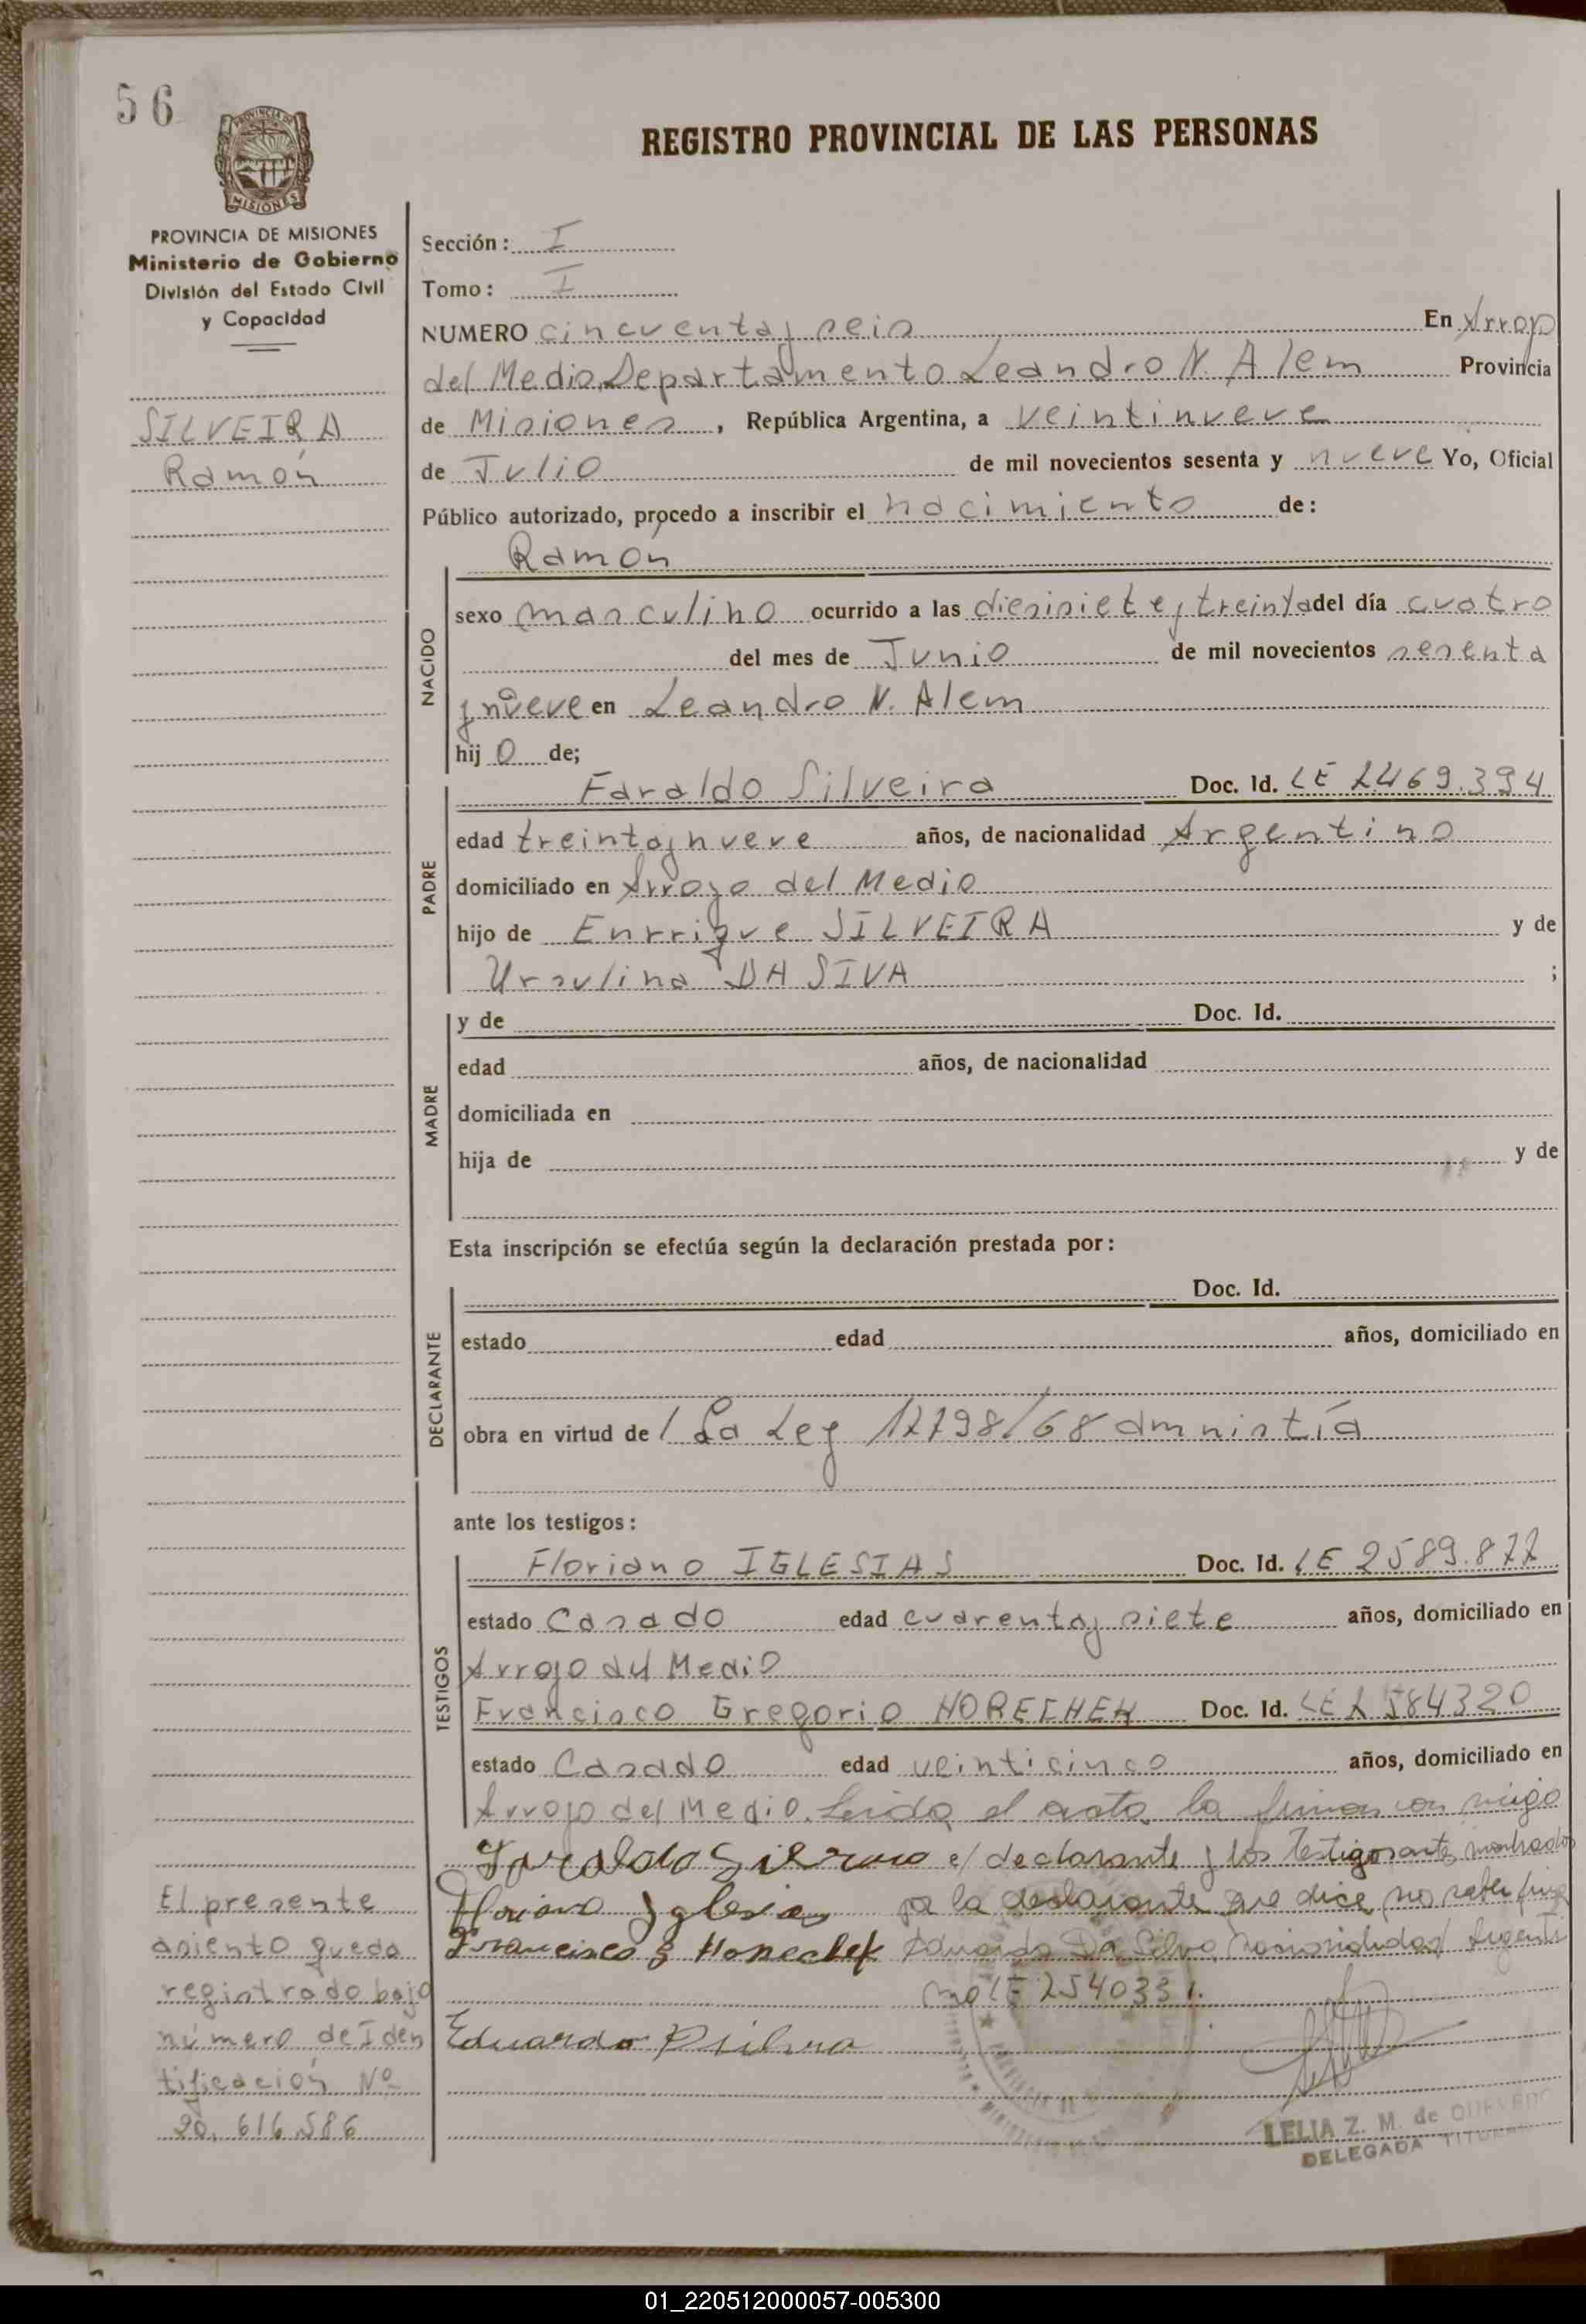 56
REGISTRO PROVINCIAL DE LAS PERSONAS
PROVINCIA DE MISIONES
Ministerio de Gobierno
División del Estado Civil
y Capacidad
SILVEIRA
Ramón
Sección: I
Tomo: I
NUMERO cincuenta y seis En Arroyo
del Medio, Departamento Leandro N. Alem Provincia
de Misiones, República Argentina, a veintinueve
de Julio de mil novecientos sesenta y nueve Yo, Oficial
Público autorizado, procedo a inscribir el nacimiento de:
NACIDO
Ramón
sexo masculino ocurrido a las diesisiete y treinta del día cuatro
del mes de Junio de mil novecientos sesenta
y nueve en Leandro N. Alem
hij o de;
PADRE
Faraldo Silveira Doc. Id. LE 2469.394
edad treinta y nueve años, de nacionalidad Argentino
domiciliado en Arroyo del Medio
hijo de Enrrique SILVEIRA y de
Ursulina DA SIVA ;
MADRE
y de Doc. Id.
edad años, de nacionalidad
domiciliada en
hija de y de
Esta inscripción se efectúa según la declaración prestada por:
DECLARANTE
Doc. Id.
estado edad años, domiciliado en
obra en virtud de / La Ley 17798/68 amnistía
ante los testigos:
TESTIGOS
Floriano IGLESIAS Doc. Id. LE 2589.877
estado Casado edad cuarenta y siete años, domiciliado en
Arroyo del Medio
Francisco Gregorio Doc. Id. LE 584320
estado Casado edad veinticinco años, domiciliado en
Arroyo del Medio. Leida el acta la firman con migo
Faraldo el declarante y los Testigos antes nombrados
Floriano Yglesias por la declarante que dice no saber firmar
Francisco G Eduardo Da Silva, nacionalidad Argenti
no LE 2540331.
Eduardo Dsilva
LELIA Z. M. de QUEVEDO
DELEGADA TITULAR
El presente
asiento queda
registrado bajo
número de Iden
tificación Nº
20.616.586
01_220512000057-005300